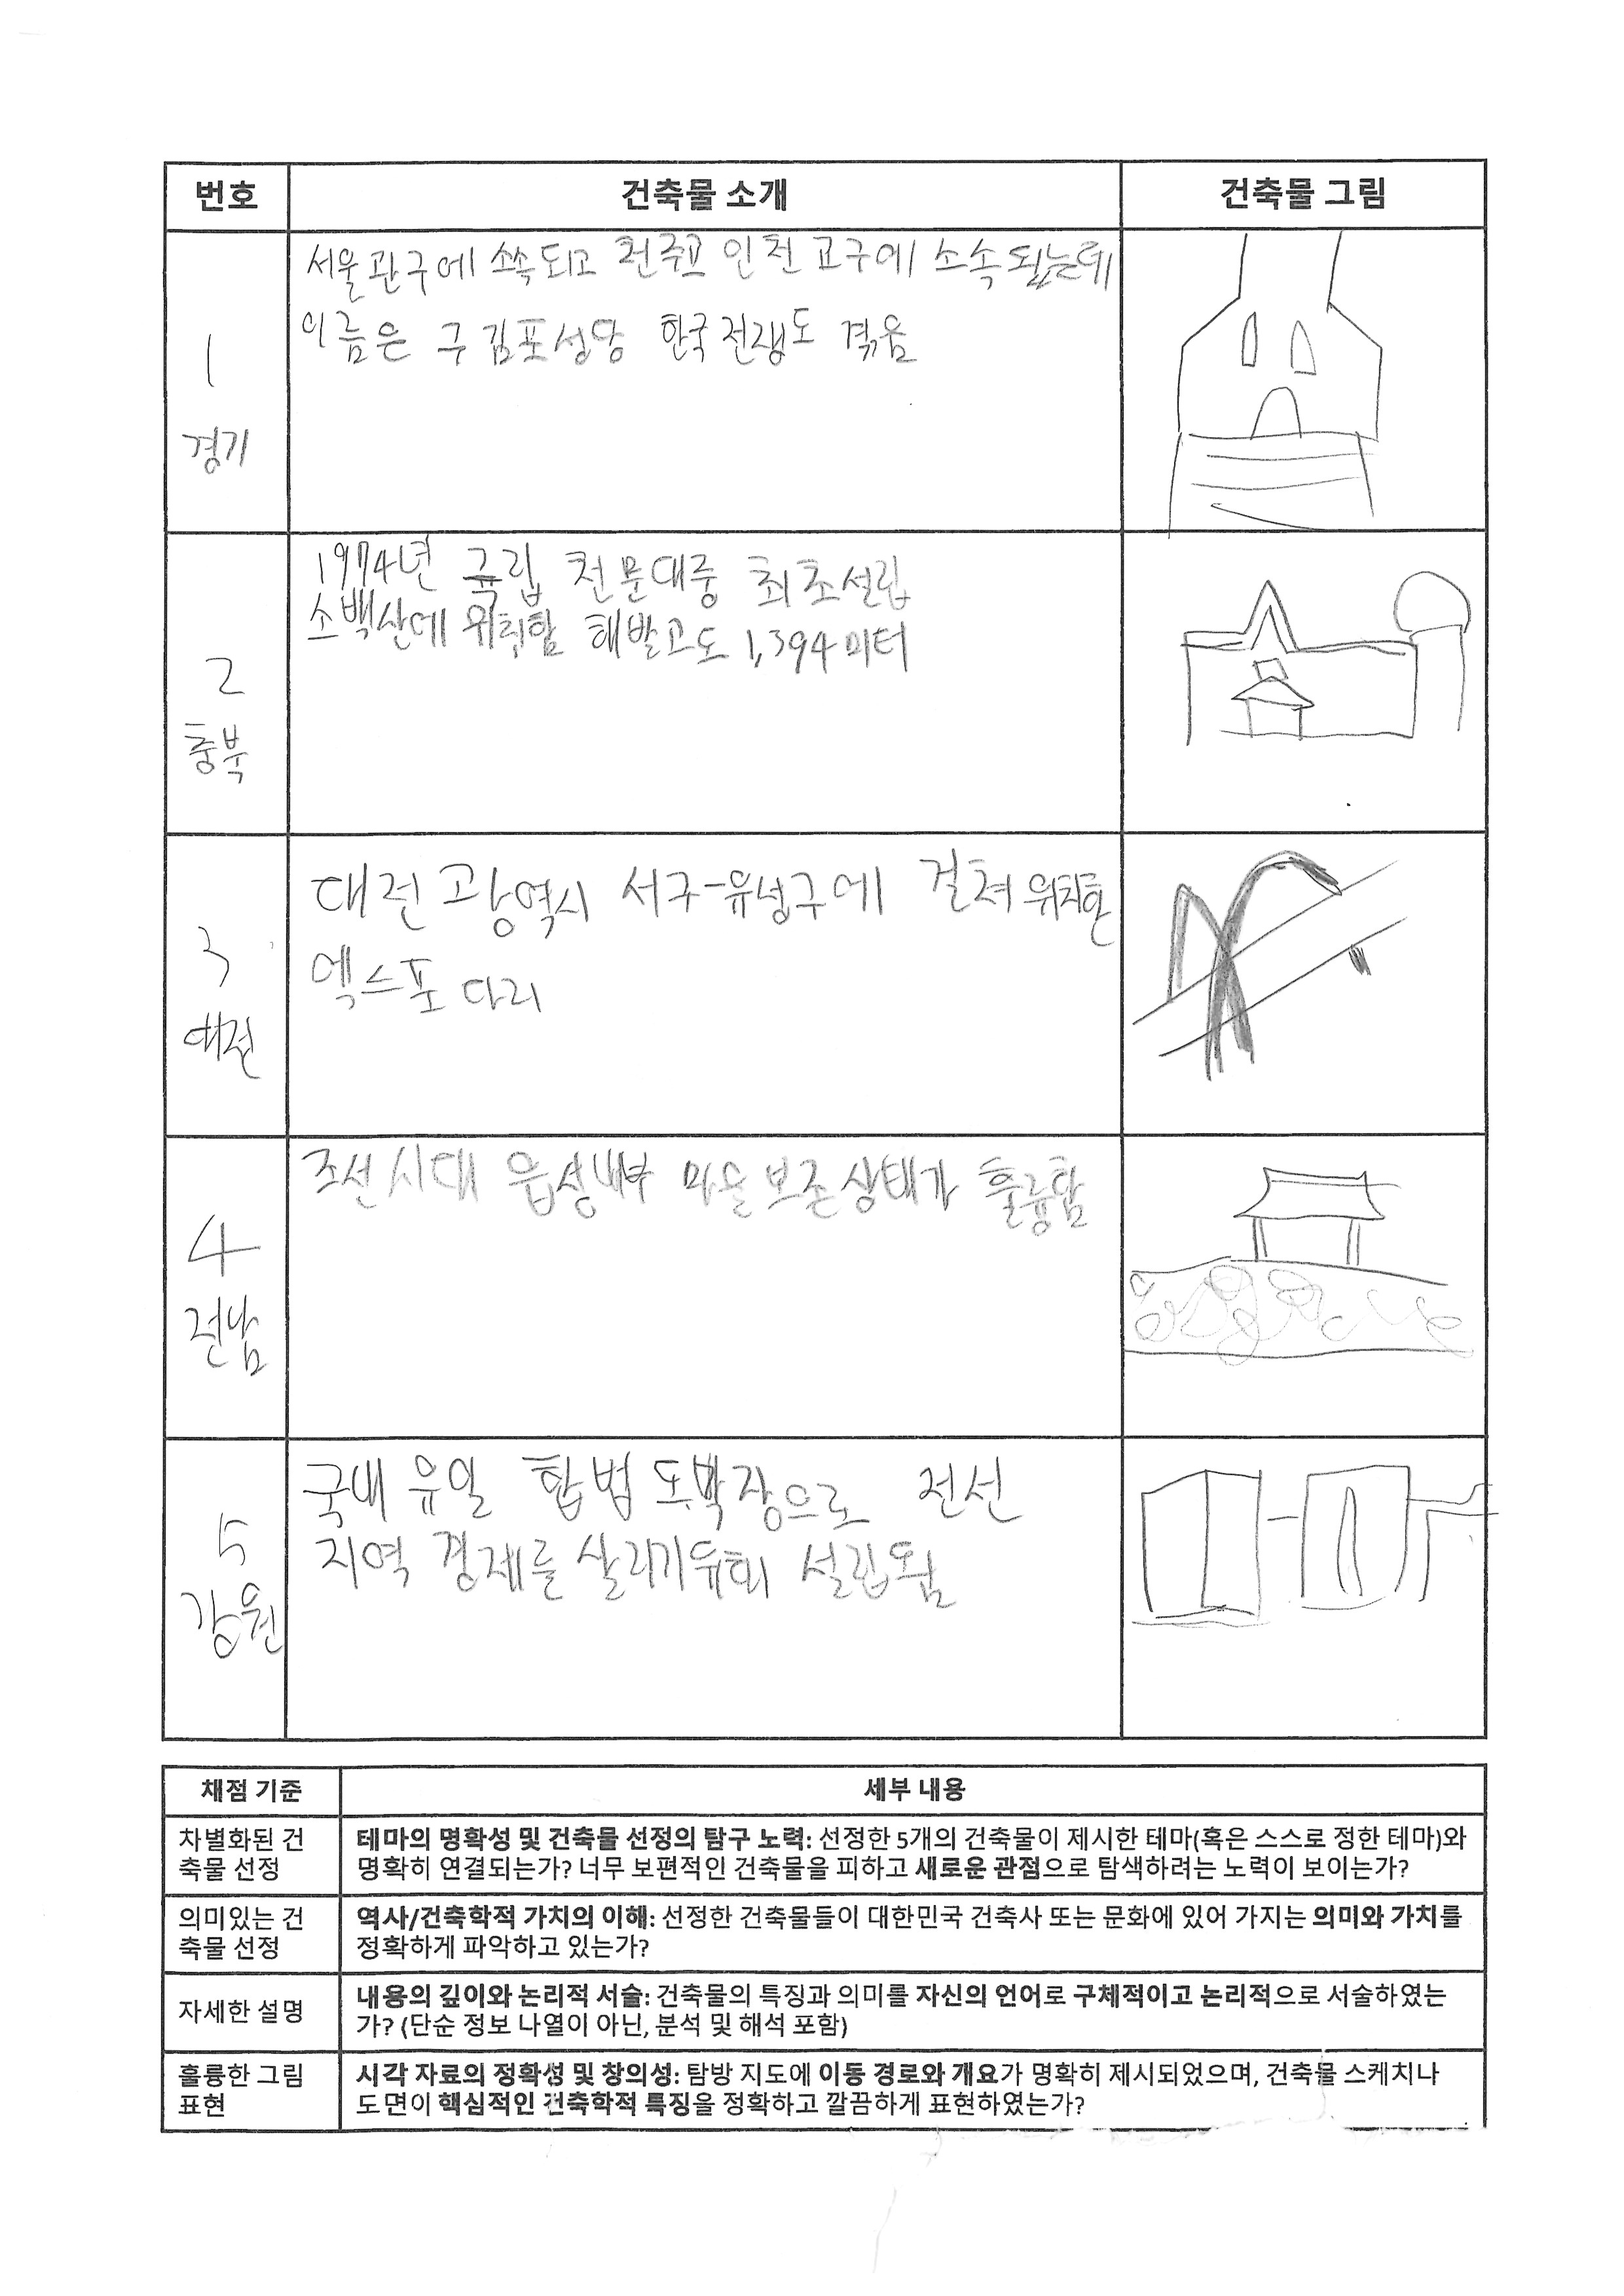 번호 건축물 소개 건축물 그림
1
경기
서울관구에 소속되고 천주교 인천 교구에 소속됬는데
이름은 구 김포성당 한국전쟁도 겪음
2
충북
1974년 국립 천문대중 최초설립
소백산에 위취함 해발고도 1,394미터
3
대전
대전광역시 서구-유성구에 걸쳐 위치한
엑스포 다리
4
전남
조선시대 읍성내부 마을 보존상태가 훌륭함
5
강원
국내 유일 합법 도박장으로 전선
지역 경제를 살리기위해 설립됨
채점 기준 세부 내용
차별화된 건
축물 선정
테마의 명확성 및 건축물 선정의 탐구 노력: 선정한 5개의 건축물이 제시한 테마(혹은 스스로 정한 테마)와
명확히 연결되는가? 너무 보편적인 건축물을 피하고 새로운 관점으로 탐색하려는 노력이 보이는가?
의미있는 건
축물 선정
역사/건축학적 가치의 이해: 선정한 건축물들이 대한민국 건축사 또는 문화에 있어 가지는 의미와 가치를
정확하게 파악하고 있는가?
자세한 설명
내용의 깊이와 논리적 서술: 건축물의 특징과 의미를 자신의 언어로 구체적이고 논리적으로 서술하였는
가? (단순 정보 나열이 아닌, 분석 및 해석 포함)
훌륭한 그림
표현
시각 자료의 정확성 및 창의성: 탐방 지도에 이동 경로와 개요가 명확히 제시되었으며, 건축물 스케치나
도면이 핵심적인 건축학적 특징을 정확하고 깔끔하게 표현하였는가?